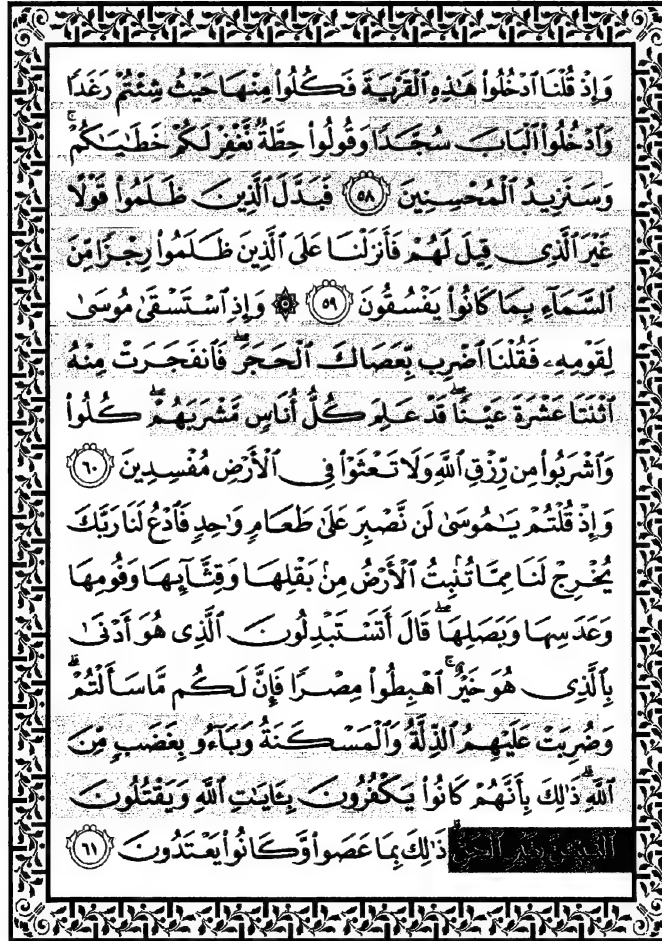 وَإِذْ قُلْنَا ٱدْخُلُوا۟ هَٰذِهِ ٱلْقَرْيَةَ فَكُلُوا۟ مِنْهَا حَيْثُ شِئْتُمْ رَغَدًا
وَٱدْخُلُوا۟ ٱلْبَابَ سُجَّدًا وَقُولُوا۟ حِطَّةٌ نَّغْفِرْ لَكُمْ خَطَٰيَٰكُمْ ۚ
وَسَنَزِيدُ ٱلْمُحْسِنِينَ ٥٨ فَبَدَّلَ ٱلَّذِينَ ظَلَمُوا۟ قَوْلًا
غَيْرَ ٱلَّذِى قِيلَ لَهُمْ فَأَنزَلْنَا عَلَى ٱلَّذِينَ ظَلَمُوا۟ رِجْزًا مِّنَ
ٱلسَّمَآءِ بِمَا كَانُوا۟ يَفْسُقُونَ ٥٩ ۞ وَإِذِ ٱسْتَسْقَىٰ مُوسَىٰ
لِقَوْمِهِۦ فَقُلْنَا ٱضْرِب بِّعَصَاكَ ٱلْحَجَرَ ۖ فَٱنفَجَرَتْ مِنْهُ
ٱثْنَتَا عَشْرَةَ عَيْنًا ۖ قَدْ عَلِمَ كُلُّ أُنَاسٍ مَّشْرَبَهُمْ ۖ كُلُوا۟
وَٱشْرَبُوا۟ مِن رِّزْقِ ٱللَّهِ وَلَا تَعْثَوْا۟ فِى ٱلْأَرْضِ مُفْسِدِينَ ٦٠
وَإِذْ قُلْتُمْ يَٰمُوسَىٰ لَن نَّصْبِرَ عَلَىٰ طَعَامٍ وَٰحِدٍ فَٱدْعُ لَنَا رَبَّكَ
يُخْرِجْ لَنَا مِمَّا تُنۢبِتُ ٱلْأَرْضُ مِنۢ بَقْلِهَا وَقِثَّآئِهَا وَفُومِهَا
وَعَدَسِهَا وَبَصَلِهَا ۖ قَالَ أَتَسْتَبْدِلُونَ ٱلَّذِى هُوَ أَدْنَىٰ
بِٱلَّذِى هُوَ خَيْرٌ ۚ ٱهْبِطُوا۟ مِصْرًا فَإِنَّ لَكُم مَّا سَأَلْتُمْ ۗ
وَضُرِبَتْ عَلَيْهِمُ ٱلذِّلَّةُ وَٱلْمَسْكَنَةُ وَبَآءُو بِغَضَبٍ مِّنَ
ٱللَّهِ ۗ ذَٰلِكَ بِأَنَّهُمْ كَانُوا۟ يَكْفُرُونَ بِـَٔايَٰتِ ٱللَّهِ وَيَقْتُلُونَ
ٱلنَّبِيِّـۧنَ بِغَيْرِ ٱلْحَقِّ ۗ ذَٰلِكَ بِمَا عَصَوا۟ وَّكَانُوا۟ يَعْتَدُونَ ٦١